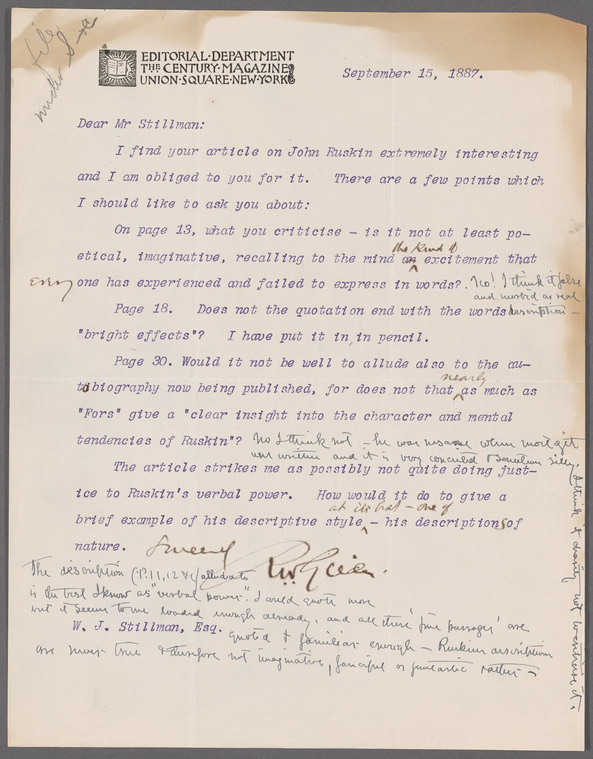 file
under S-
EDITORIAL·DEPARTMENT
THE CENTURY·MAGAZINE
UNION·SQUARE·NEW·YORK
September 15, 1887.
Dear Mr Stillman:
I find your article on John Ruskin extremely interesting
and I am obliged to you for it. There are a few points which
I should like to ask you about:
On page 13, what you criticise - is it not at least po-
etical, imaginative, recalling to the mind an excitement that
the kind of
every one has experienced and failed to express in words?
No! I think it false
and morbid as real
description -
Page 18. Does not the quotation end with the words
"bright effects"? I have put it in, in pencil.
Page 30. Would it not be well to allude also to the au-
tobiography now being published, for does not that as much as
nearly
"Fors" give a "clear insight into the character and mental
tendencies of Ruskin"?
No I think not - he was insane when most of it
was written and it is very conceited & silly.
I think it charity not to
The article strikes me as possibly not quite doing just-
ice to Ruskin's verbal power. How would it do to give a
brief example of his descriptive style, - his descriptions of
at its best - one of
nature.
Sincerely
R.W. Gilder.
The description (P. 11, 12 &c) alluded to
is the best I know as "verbal power". I could quote more
but it seems to me loaded enough already, and all these 'fine passages' are
W. J. Stillman, Esq.
quoted & familiar enough - Ruskin's descriptions
are never true & therefore not imaginative, fanciful or fantastic rather -